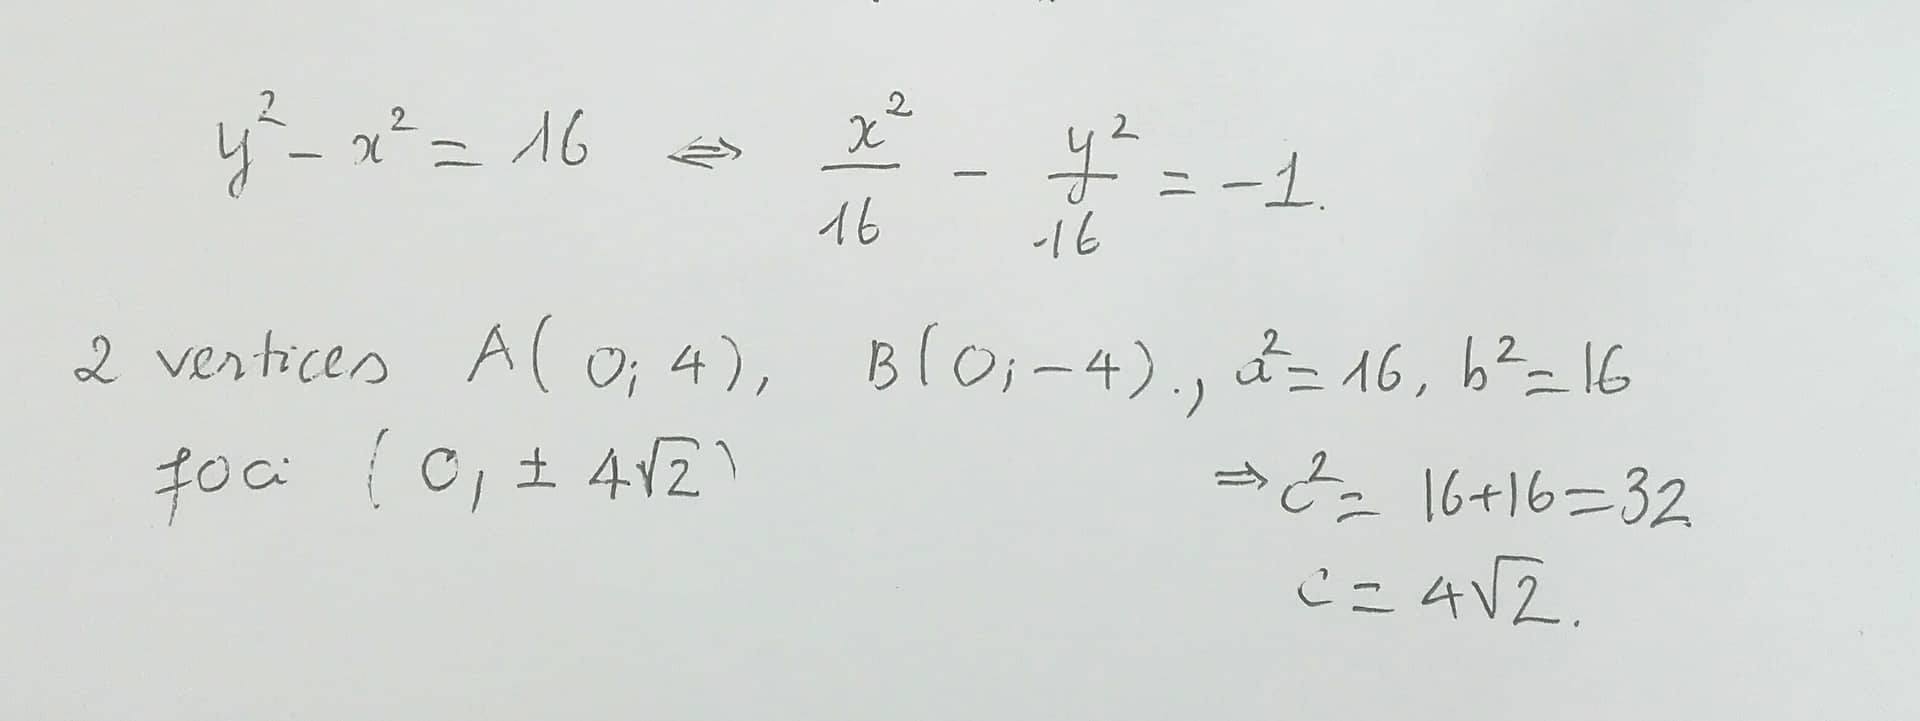 y² - x² = 16 ⇔ x²/16 - y²/16 = -1.
2 vertices A(0; 4), B(0; -4)., a² = 16, b² = 16
foci (0, ± 4√2) ⇒ c² = 16+16 = 32
c = 4√2.